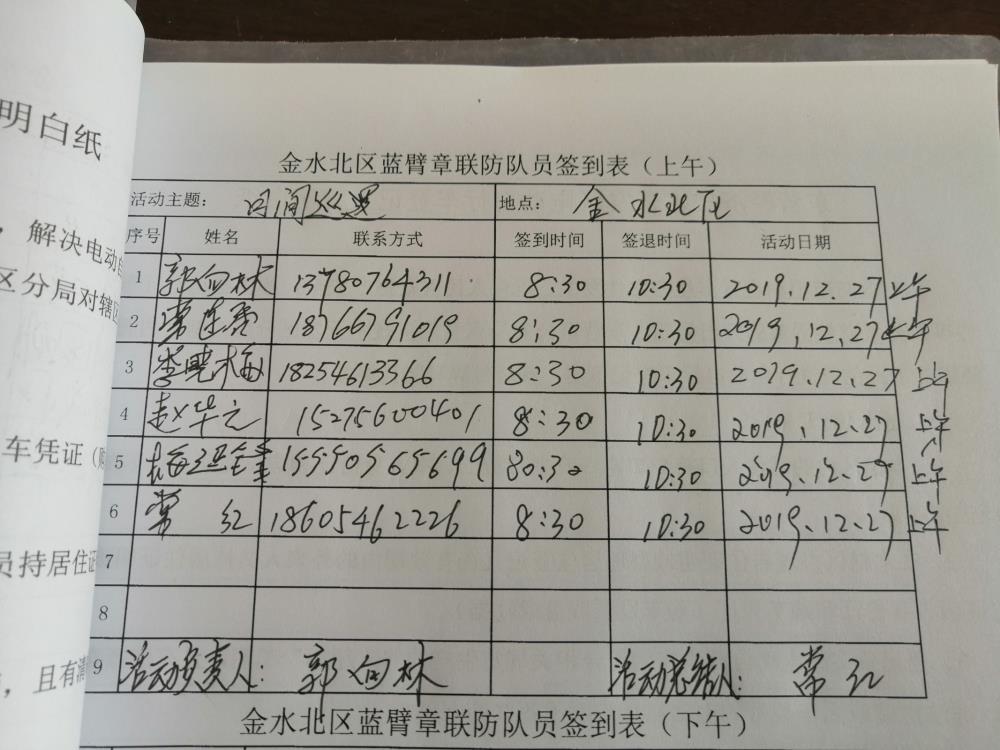 明白纸
，解决电动自
区分局对辖区
车凭证（购
员持居住证
，且有清
金水北区蓝臂章联防队员签到表（上午）
活动主题：日间巡逻 地点：金水北区
序号 姓名 联系方式 签到时间 签退时间 活动日期
1 郭向林 13780764311 8:30 10:30 2019.12.27上午
2 常连贵 18766791019 8:30 10:30 2019.12.27上午
3 李晓梅 18254613366 8:30 10:30 2019.12.27 上午
4 赵华元 15275600401 8:30 10:30 2019.12.27 上午
5 15550565699 80:30 10:30 2019.12.27 上午
6 常红 18605462226 8:30 10:30 2019.12.27 上午
7
8
9 活动负责人：郭向林 活动总结人：常红
金水北区蓝臂章联防队员签到表（下午）